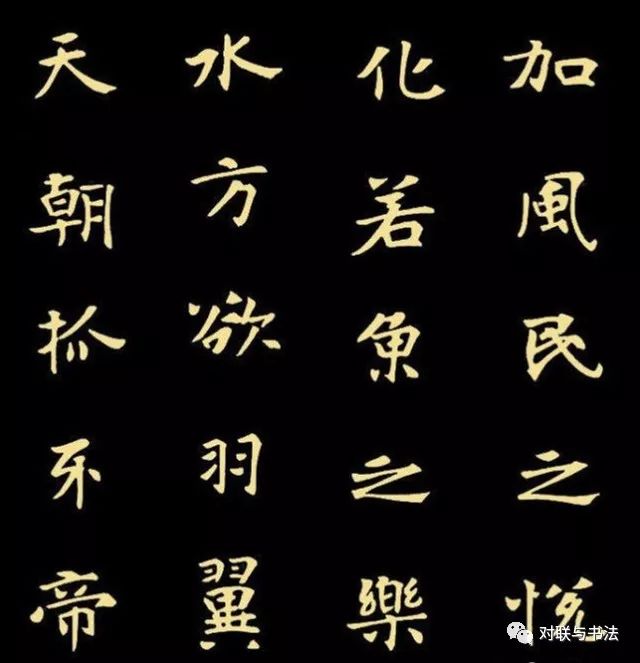 加風民之悅
化若魚之樂
水方欲羽翼
天朝抓牙帝
对联与书法